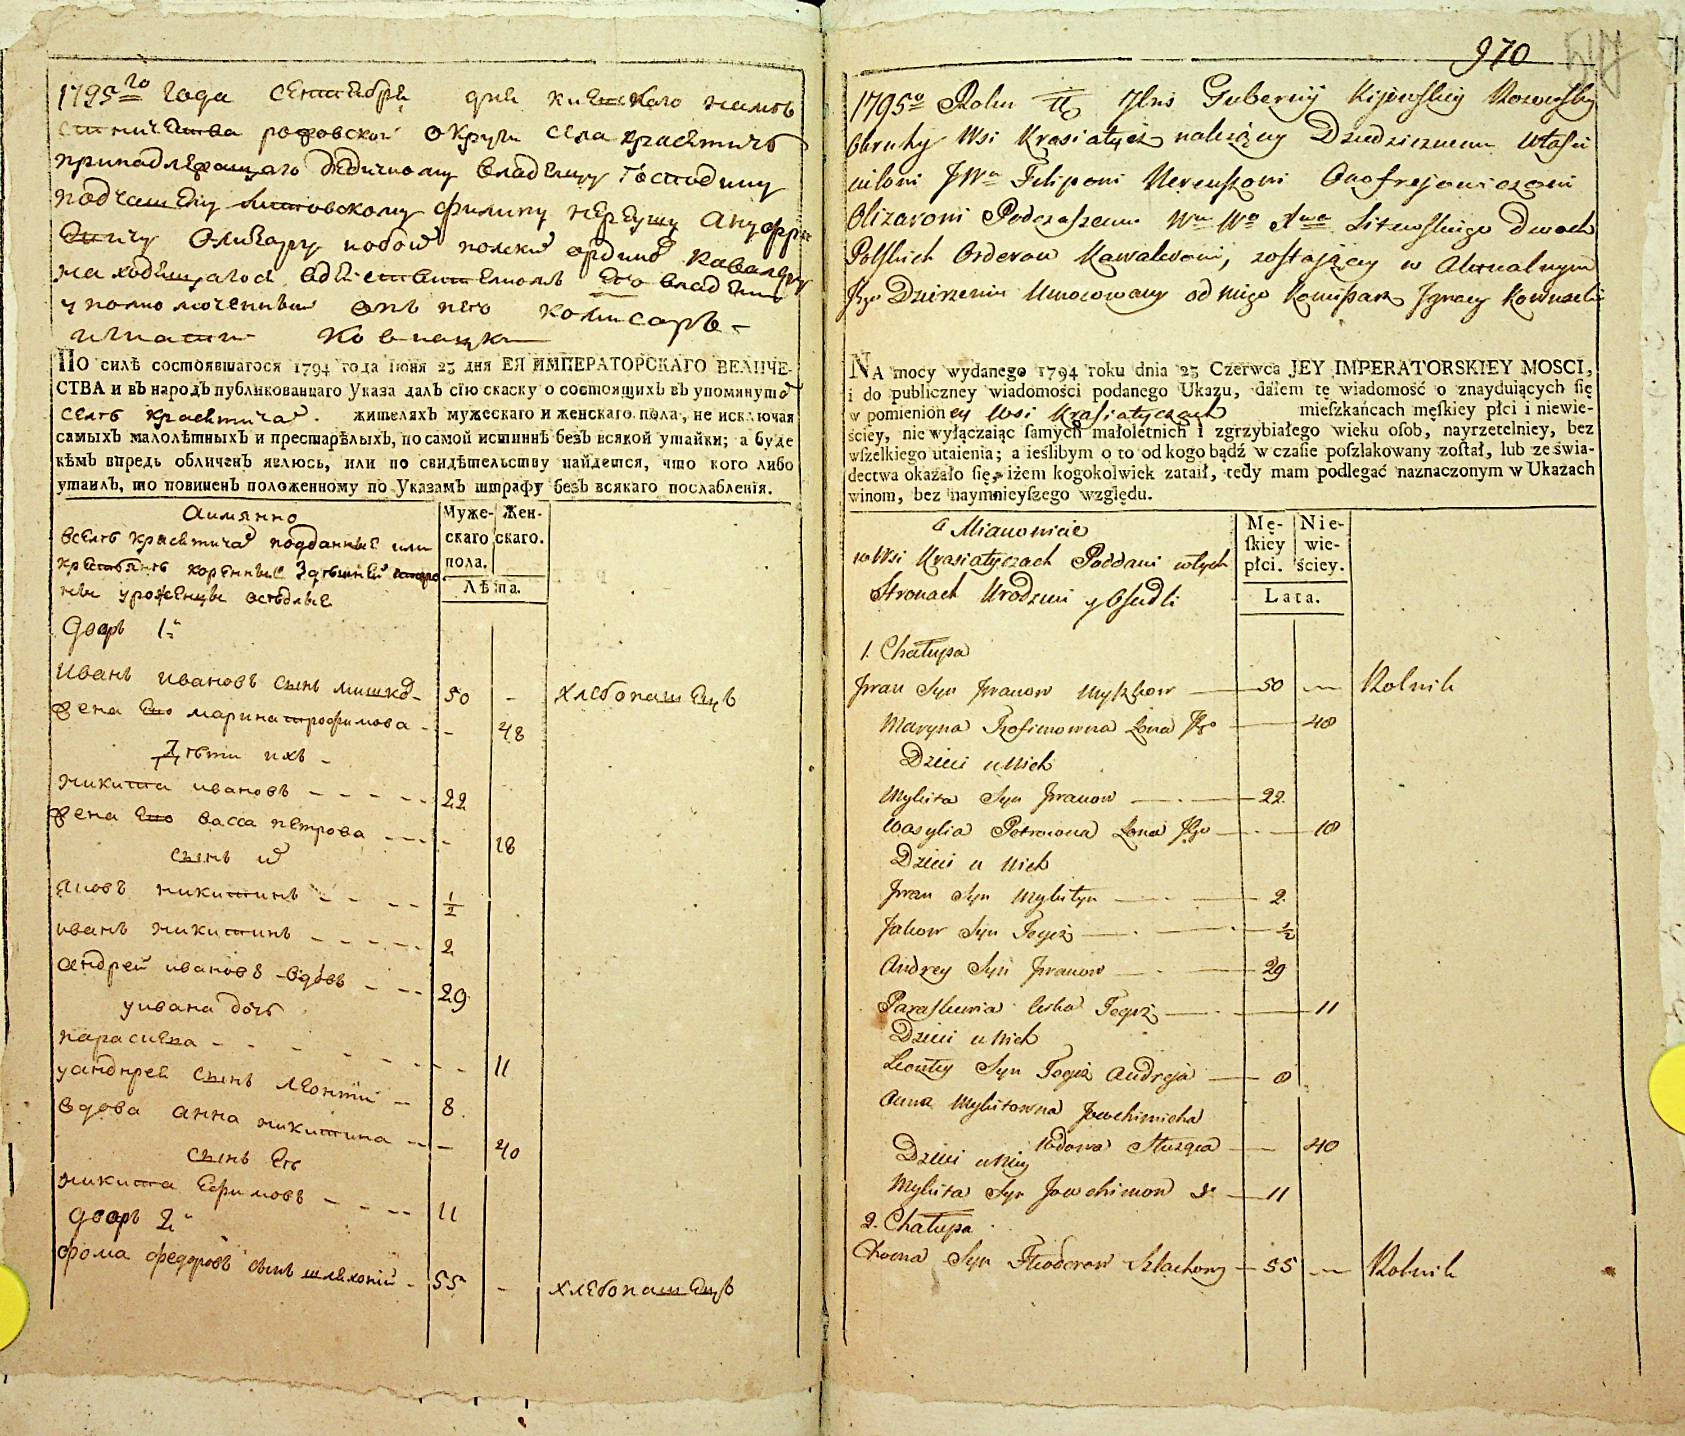 1795го года сентебря дня киевскаго намѣ
стничества рожовской округи села красятичь
принадлежащаго дѣдичному владелцу Господину
подчашему литовскому филипу нереушу ануфри
евичу Оливару побой полски ордино кавалеру
находящагося вдѣствителномъ его владении
уполномоченный отъ него комисаръ
игнатий Ковнацки
ПО силѣ состоявшагося 1794 года Іюня 23 дня ЕЯ ИМПЕРАТОРСКАГО ВЕЛИЧЕ-
СТВА и въ народъ публикованнаго Указа далъ сію скаску о состоящихъ въ упомянуто
селѣ красятича жителяхъ мужескаго и женскаго пола, не исключая
самыхъ малолѣтныхъ и престарѣлыхъ, по самой истиннѣ безъ всякой утайки; а буде
кѣмъ впредь обличенъ явлюсь, или по свидѣтельству найдется, что кого либо
утаилъ, то повиненъ положенному по Указамъ штрафу безъ всякаго послабленія.
Аимянно
вселѣ красятича подданные или
крестьянѣ коренные здешней сторо
ны уроженцы оседлые
Муже-
скаго
пола.
Жен-
скаго.
Лѣта.
дворъ 1й
Иванъ ивановъ сынъ мишко - 50 - хлебопашецъ
жена Его марина трофимова - - 48
Дѣти ихъ -
никита ивановъ - - - - 22
жена Его васса петрова - - - 18
сынъ и
яковъ никитинъ - - - - 1/2
иванъ никитинъ - - - - 2
андрей ивановъ - вдовъ - - - 29
уивана дочь
парасиева - - - - - - 11
уандрея сынъ леонтий - 8
вдова анна никитина - - - 40
сынъ Еѣ
никита Ефимовъ - - - - 11
дворъ 2й
фома федоровъ сынъ шляхоцій - 55 - хлебопашецъ
970
517
1795o Roku Dnia Gubernij Kijowskiy Rozowskiy
Okruhy Wsi Krasiatycz należącey Dziedzicznemu Właści
cielowi JWu Filipowi Nereuszowi Onofrejowiczowi
Olizarowi Podczaszemu Wo Xwa Litewskiego Dwoch
Polskich Orderow Kawalerowi, zostającey w Aktualnym
Jego Dzierzeniu Umocowany od niego Komissarz Jgnacy Kownacki
NA mocy wydanego 1794 roku dnia 23 Czerwca JEY IMPERATORSKIEY MOSCI,
i do publiczney wiadomości podanego Ukazu, dałem tę wiadomość o znayduiących się
w pomienioney Wsi Krasiatyczach mieſzkańcach męſkiey płci i niewie-
ściey, nie wyłączaiąc ſamych małoletnich i zgrzybiałego wieku oſob, nayrzetelniey, bez
wſzelkiego utaienia; a ieślibym o to od kogo bądź w czaſie poſzlakowany zoſtał, lub ze świa-
dectwa okazało się, iżem kogokolwiek zataił, tedy mam podlegać naznaczonym w Ukazach
winom, bez naymnieyſzego względu.
a Mianowicie
w Wsi Krasiatyczach Poddani wtych
Stronach Urodzeni y Osiedli
Mę-
ſkiey
płci.
Nie-
wie-
ściey.
Lata.
1. Chałupa
Jwan Syn Jwanow Myszkow - 50 - Rolnik
Maryna Trofimowna Żona Jego - 48
Dzieci u Nich
Mykita Syn Jwanow - 22
Wasylia Petrowna Żona Jego - 18
Dzieci u Nich
Jwan Syn Mykityn - 2
Jakow Syn Tegoż - 1/2
Andrey Syn Jwanow - 29
Paraskiewia Corka Tegoż - 11
Dzieci u Nich
Leontey Syn Tegoż Andreja - 8
Anna Mykitowna Jowchimicha
Wdowa Służąca - 40
Dzieci u Niey
Mykita Syn Jowchimow - 11
2. Chałupa
Choma Syn Fheodorow Szlachowy - 55 - Rolnik